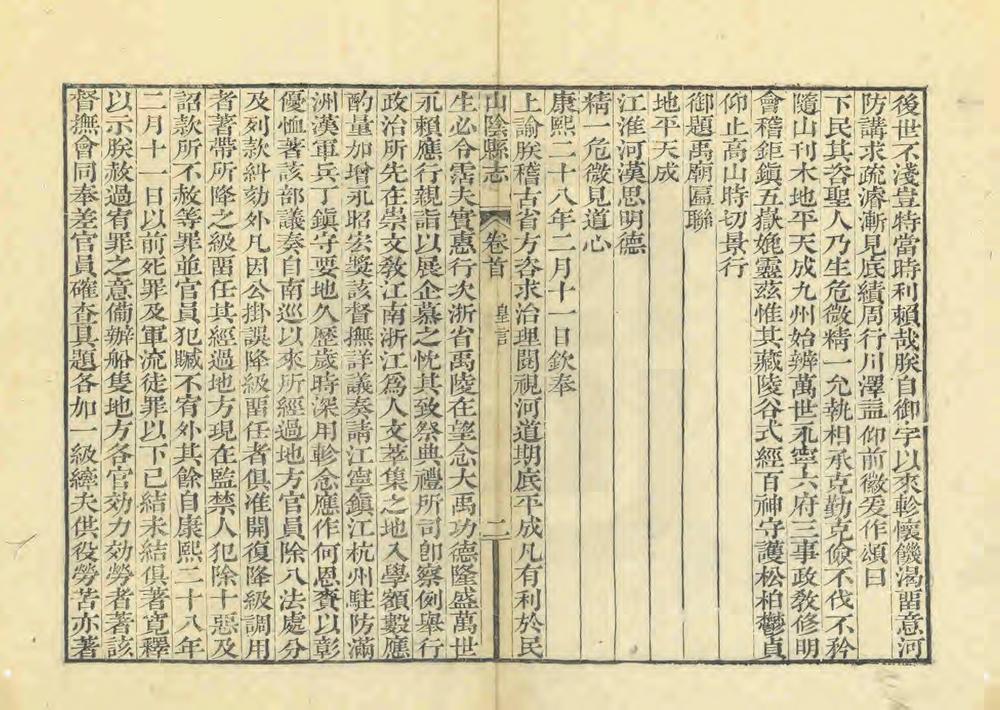 後世不淺豈特當時利賴哉朕自御宇以來軫懷饑渴畱意河
防講求疏濬漸見底績周行川澤益仰前徽爰作頌曰
下民其咨聖人乃生危微精一允執相承克勤克儉不伐不矜
隨山刊木地平天成九州始辨萬世永寧六府三事政敎修明
會稽鉅鎭五嶽媲靈茲惟其藏陵谷式經百神守護松柏鬱貞
仰止高山時切景行
御題禹廟匾聯
地平天成
江淮河漢思明德
精一危微見道心
康熙二十八年二月十一日欽奉
上諭朕稽古省方咨求治理閱視河道期底平成凡有利於民
山陰縣志 卷首 皇言 二
生必令霑夫實惠行次浙省禹陵在望念大禹功德隆盛萬世
永賴應行親詣以展企慕之忱其致祭典禮所司卽察例舉行
政治所先在崇文敎江南浙江爲人文萃集之地入學額數應
酌量加增永昭宏奬該督撫詳議奏請江寧鎭江杭州駐防滿
洲漢軍兵丁鎭守要地久歷歲時深用軫念應作何恩賚以彰
優恤著該部議奏自南巡以來所經過地方官員除八法處分
及列款糾劾外凡因公掛誤降級畱任者俱准開復降級調用
者著帶所降之級畱任其經過地方現在監禁人犯除十惡及
詔款所不赦等罪並官員犯贓不宥外其餘自康熙二十八年
二月十一日以前死罪及軍流徒罪以下已結未結俱著寬釋
以示朕赦過宥罪之意備辦船隻地方各官効力効勞者著該
督撫會同奉差官員確查具題各加一級縴夫供役勞苦亦著